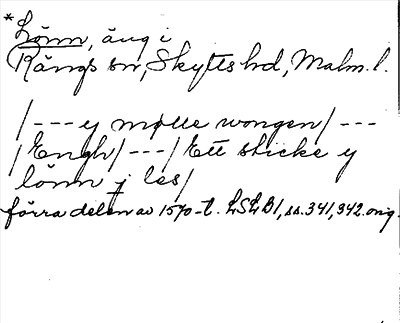 *Lönn, äng i
Rängs sn, Skytts hd, Malm. l.
/--- y mølle wongen/ ---
/Engh/ ---/ Ett sticke y
lönn j les/
förra delen av 1570-t. LSLB1, ss. 341, 342. orig.